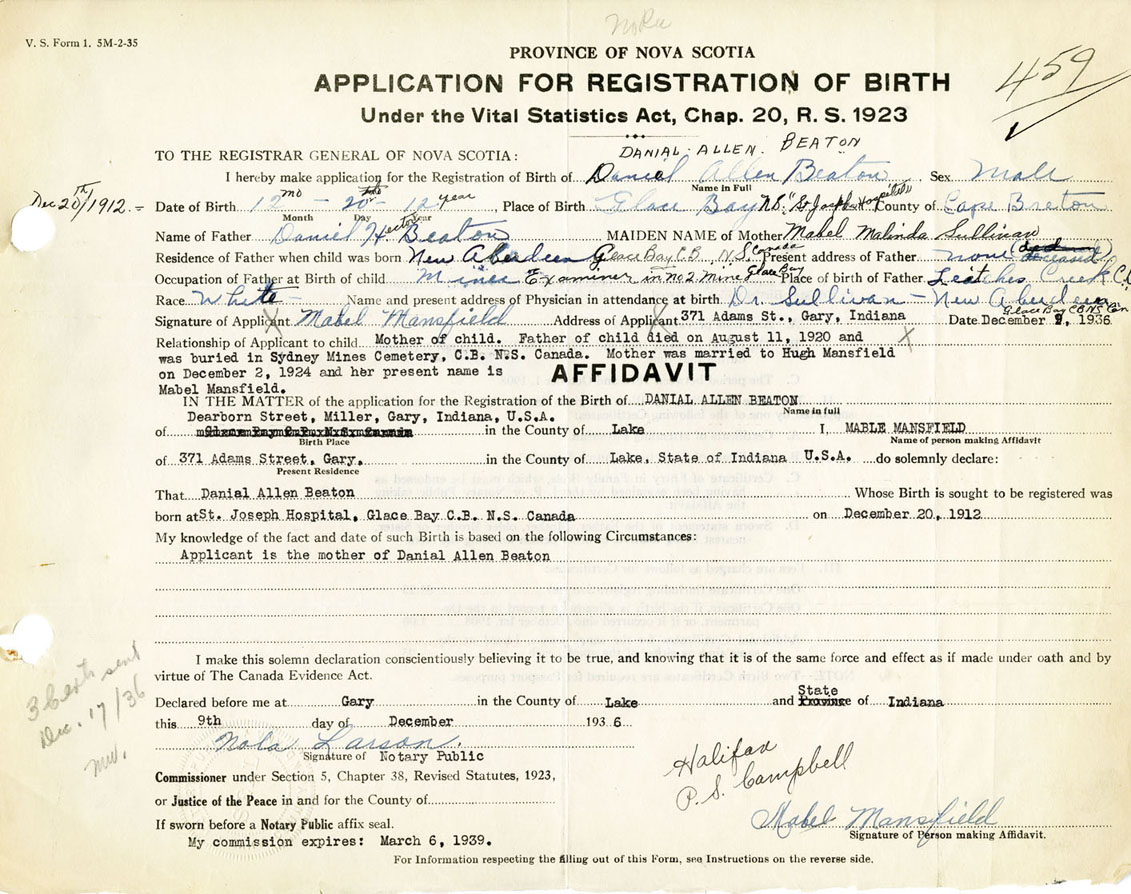 V. S. Form 1. 5M-2-35
PROVINCE OF NOVA SCOTIA
APPLICATION FOR REGISTRATION OF BIRTH
459
Under the Vital Statistics Act, Chap. 20, R. S. 1923
DANIAL ALLEN. BEATON
TO THE REGISTRAR GENERAL OF NOVA SCOTIA:
I hereby make application for the Registration of Birth of Danial Allen Beaton Sex Male
Name in Full
Dec 20th/1912.= Date of Birth 12 mo - 20 - 12 year, Place of Birth Glace Bay N.S. "St Joseph Hospital" County of Cape Breton
Month Day Year
Name of Father Daniel Hector Beaton MAIDEN NAME of Mother Mabel Malinda Sullivan
Residence of Father when child was born New Aberdeen Glace Bay C.B. N.S. Canada Present address of Father none (deceased)
Occupation of Father at Birth of child Mines Examiner in No 2 Mine Glace Bay Place of birth of Father Leitches Creek C.B.
Race White - Name and present address of Physician in attendance at birth Dr. Sullivan - New Aberdeen
Glace Bay CB NS Can
Signature of Applicant Mabel Mansfield Address of Applicant 371 Adams St., Gary, Indiana Date December 9, 1936
Relationship of Applicant to child Mother of child. Father of child died on August 11, 1920 and
was buried in Sydney Mines Cemetery, C.B. N.S. Canada. Mother was married to Hugh Mansfield
on December 2, 1924 and her present name is
Mabel Mansfield.
AFFIDAVIT
IN THE MATTER of the application for the Registration of the Birth of DANIAL ALLEN BEATON
Name in full
Dearborn Street, Miller, Gary, Indiana, U.S.A.
of in the County of Lake I, MABLE MANSFIELD
Birth Place Name of person making Affidavit
of 371 Adams Street, Gary, in the County of Lake, State of Indiana U.S.A. do solemnly declare:
Present Residence
That Danial Allen Beaton Whose Birth is sought to be registered was
born at St. Joseph Hospital, Glace Bay C.B. N.S. Canada on December 20, 1912
My knowledge of the fact and date of such Birth is based on the following Circumstances:
Applicant is the mother of Danial Allen Beaton
I make this solemn declaration conscientiously believing it to be true, and knowing that it is of the same force and effect as if made under oath and by
virtue of The Canada Evidence Act.
3 Certs sent
Dec. 17/36
mw.
Declared before me at Gary in the County of Lake and State Province of Indiana
this 9th day of December 1936
Nola Larson.
Signature of Notary Public
Halifax
P. S. Campbell
Commissioner under Section 5, Chapter 38, Revised Statutes, 1923,
or Justice of the Peace in and for the County of
If sworn before a Notary Public affix seal.
Mabel Mansfield
Signature of Person making Affidavit.
My commission expires: March 6, 1939.
For Information respecting the filling out of this Form, see Instructions on the reverse side.